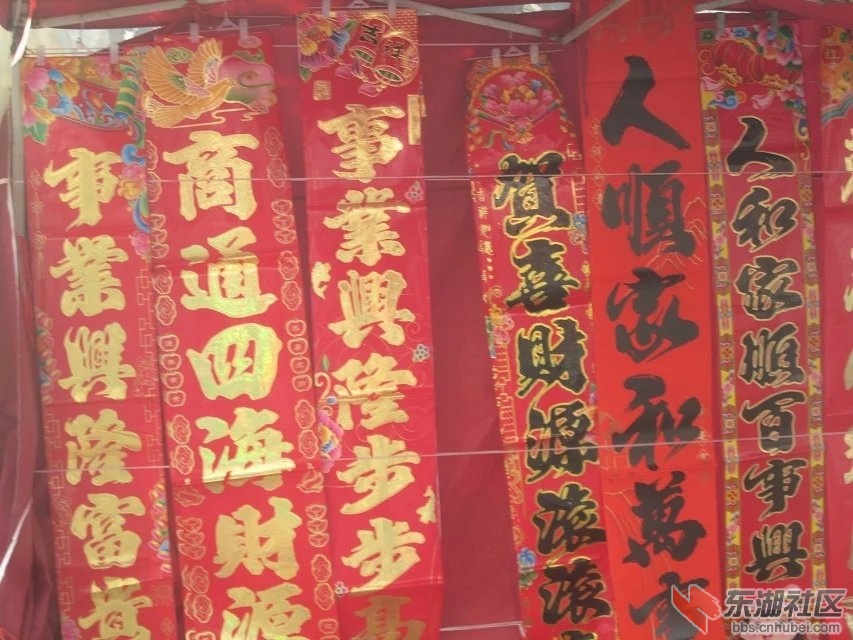 事業興隆富貴
商通四海財源
事業興隆步步高
賀喜財源滚滚
人順家和萬事
人和家順百事興
东湖社区
bbs.cnhubei.com